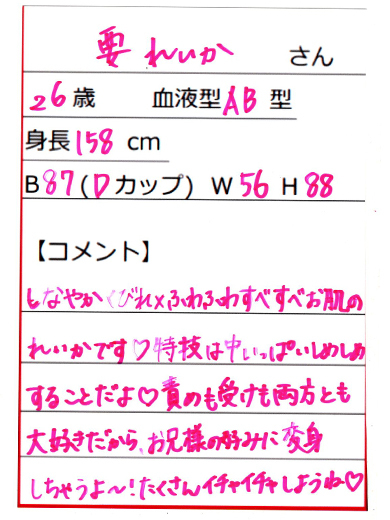 要 れいか さん
26歳 血液型AB型
身長158 cm
B87(Dカップ) W56 H88
【コメント】
しなやかくびれ×ふわふわすべすべお肌の
れいかです♡特技は中いっぱいしめしめ
することだよ♡責めも受けも両方とも
大好きだから、お兄様の好みに変身
しちゃうよ〜!たくさんイチャイチャしようね♡